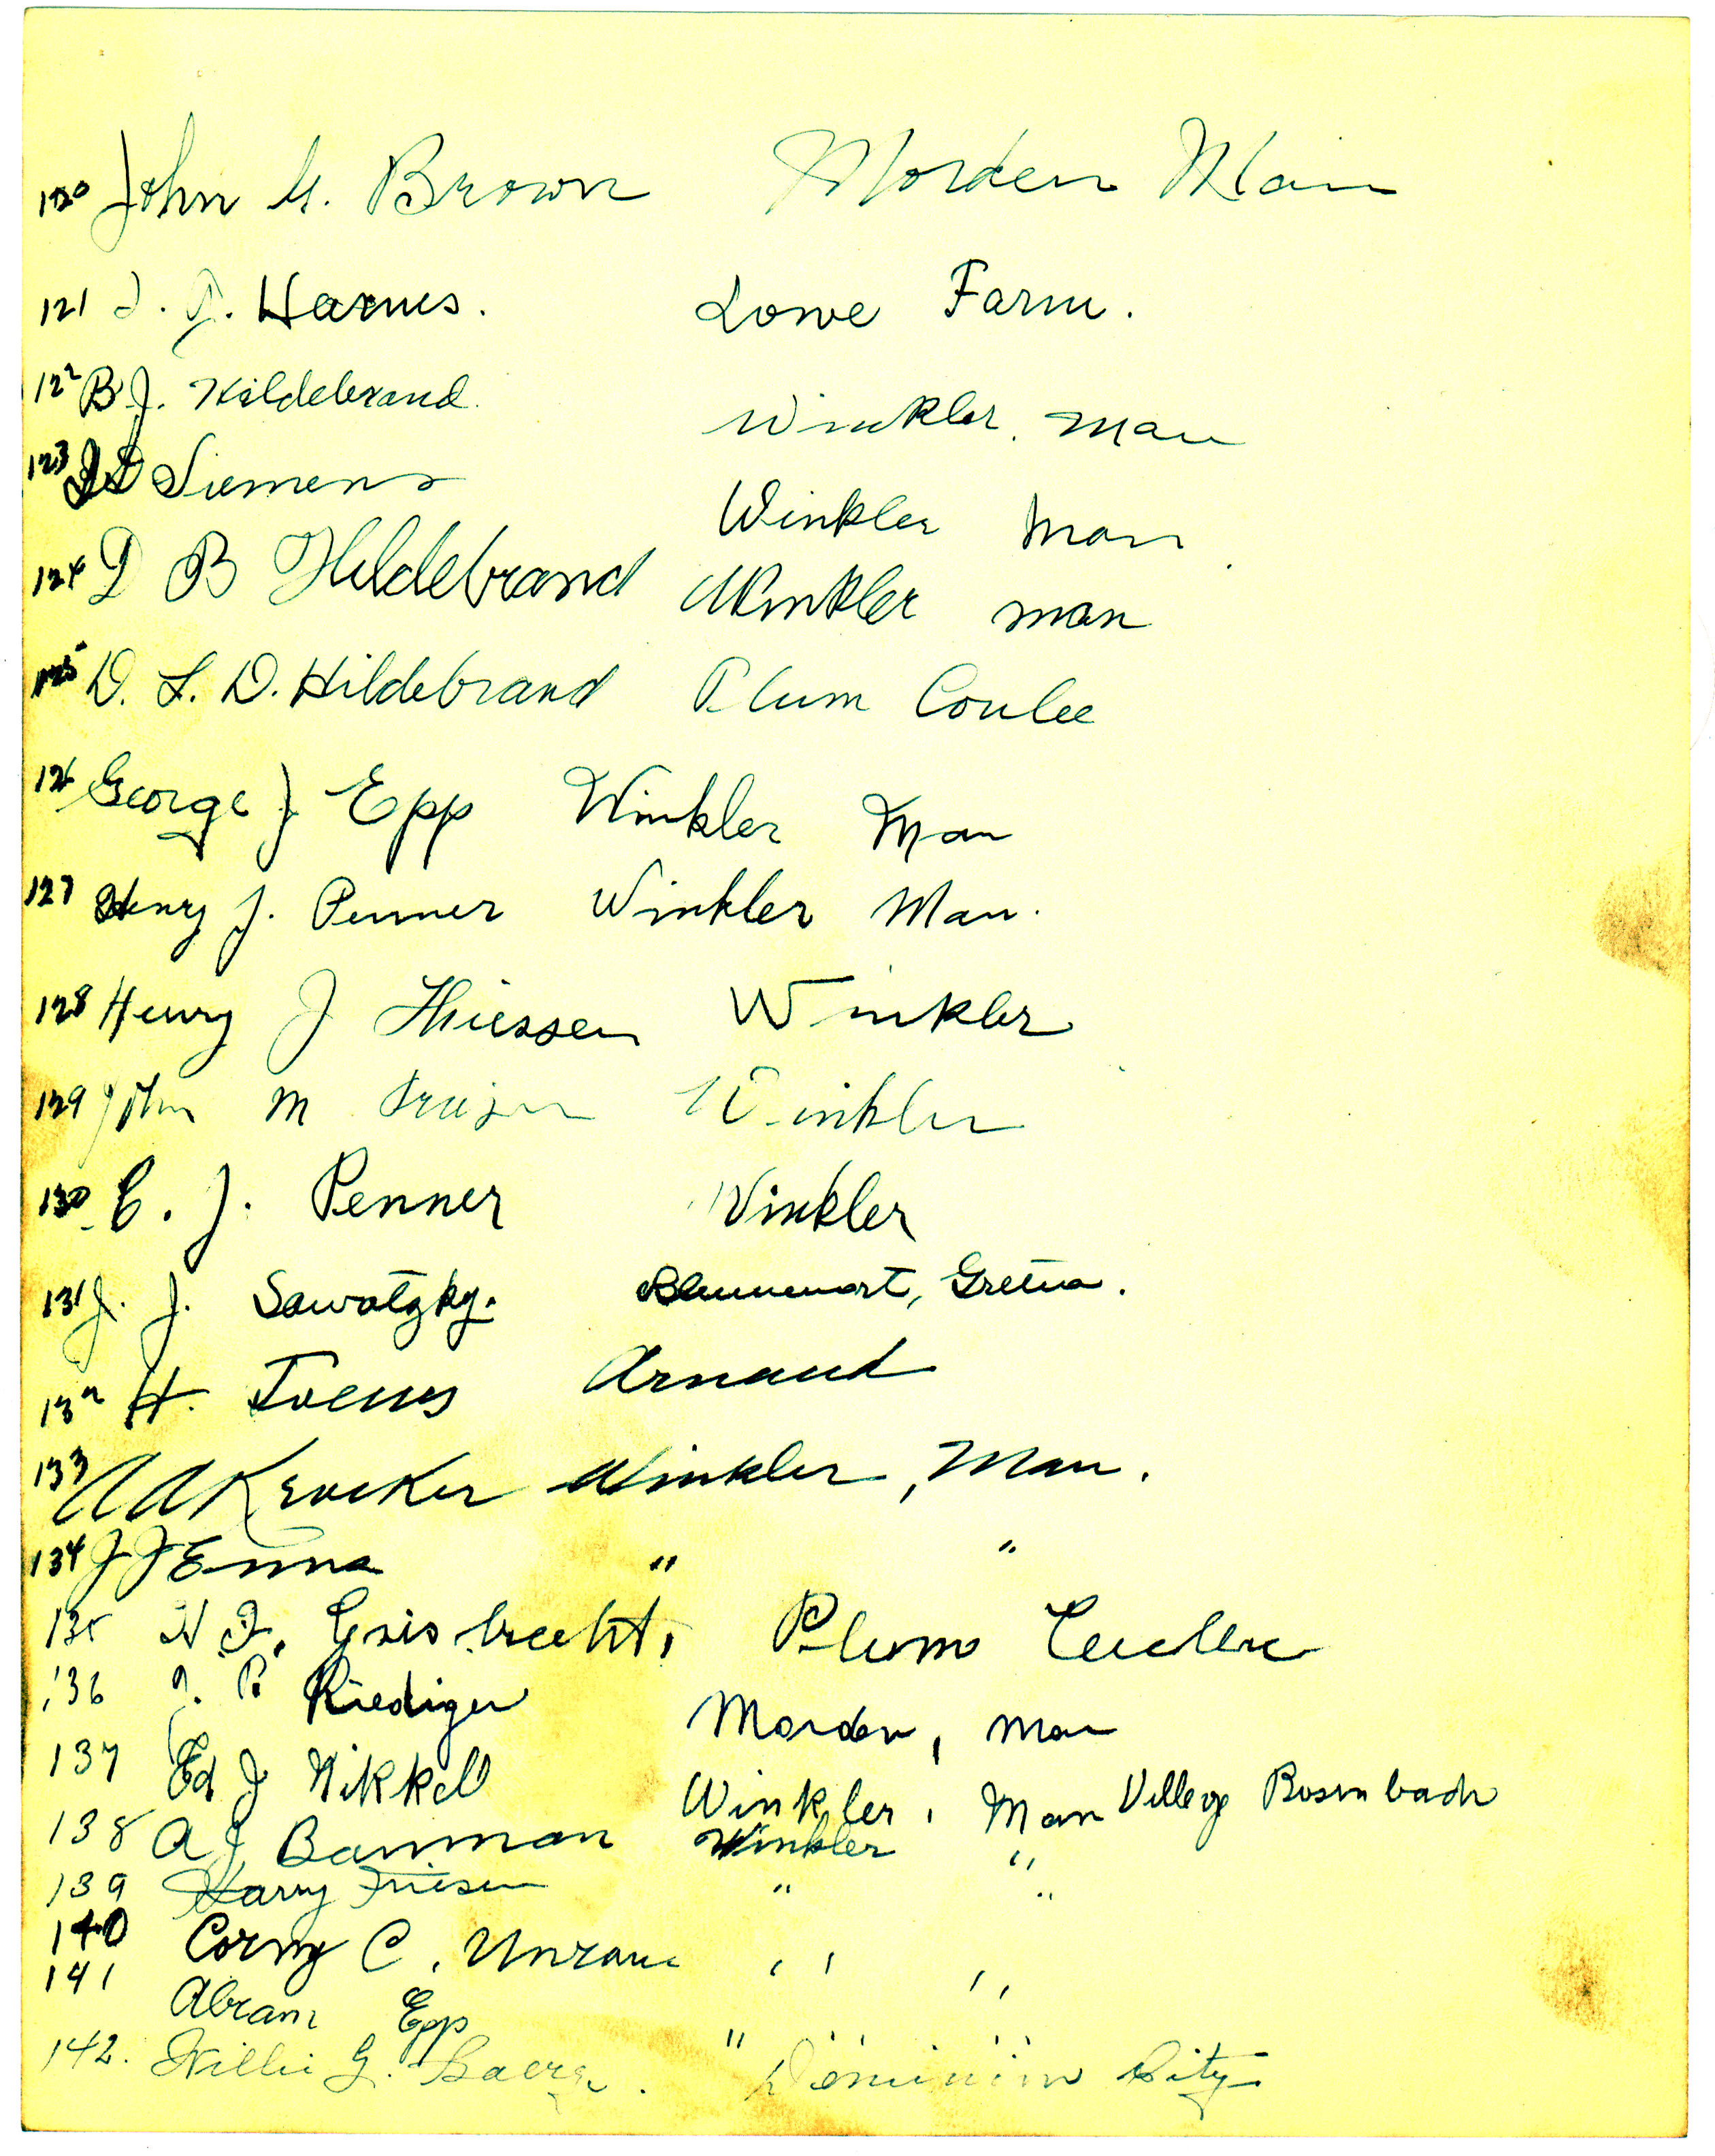 120 John G. Brown Morden Man
121 J. J. Harms. Lowe Farm.
122 B. J. Hildebrand. Winkler, Man
123 Siemens Winkler Man.
124 D B Hildebrand Winkler Man
125 D. L. D. Hildebrand Plum Coulee
126 George J Epp Winkler Man
127 Henry J. Penner Winkler Man.
128 Henry J Thiessen Winkler
129 John M Friesen Winkler
130 C. J. Penner Winkler
131 J. J. Sawatzky. Blumenort, Gretna.
132 H. Toews Arnaud
133 A A Kroeker Winkler, Man.
134 J J Enns " "
135 Giesbrecht, Plum Coulee
136 J. P. Riediger Morden, Man
137 Ed J Nikkell Winkler, Man Village Rosenbach
138 A J Banman Winkler "
139 Harry Friesen " "
140 Corny C. Unrau " "
141 Abram Epp " " "
142. Willie G. Baerg. Dominion City